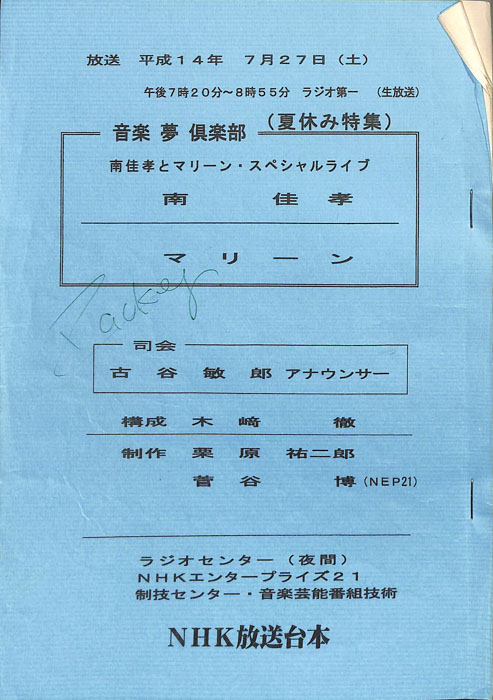 放送 平成14年 7月27日(土)
午後7時20分~8時55分 ラジオ第一 (生放送)
音楽 夢 倶楽部 (夏休み特集)
南佳孝とマリーン・スペシャルライブ
南 佳 孝
マ リ ー ン
Packey
司会
古 谷 敏 郎 アナウンサー
構成 木 﨑 徹
制作 栗 原 祐二郎
菅 谷 博(NEP21)
ラジオセンター(夜間)
NHKエンタープライズ21
制技センター・音楽芸能番組技術
NHK放送台本